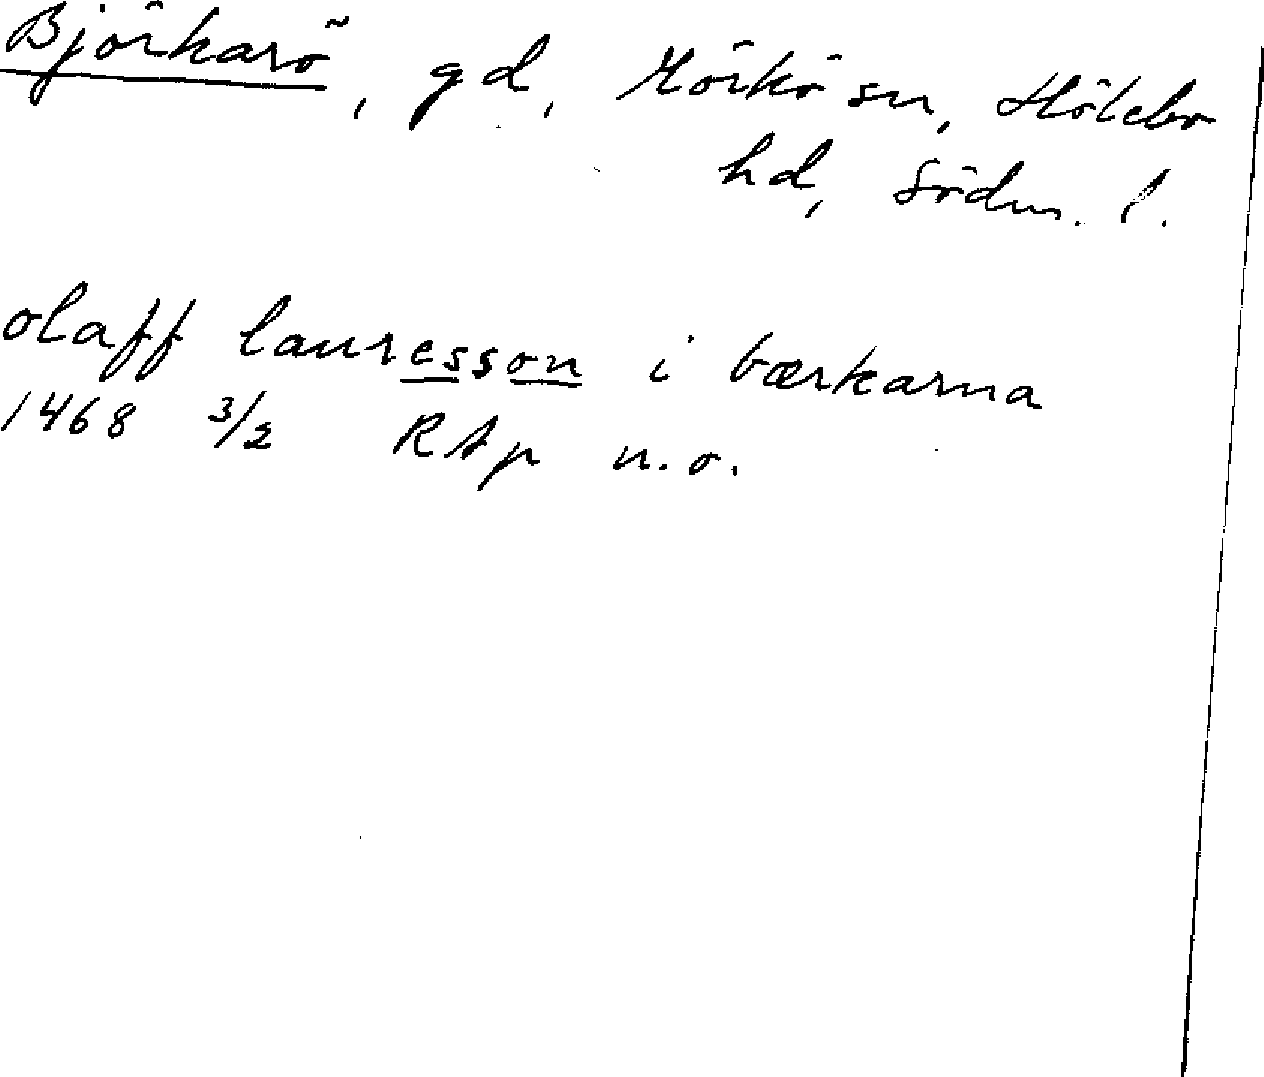 Björkarö, gd, Mörkö sn, Hölebo
hd, Södm. l.
olaff lauresson i bærkarna
1468 3/2 RAp n.o.